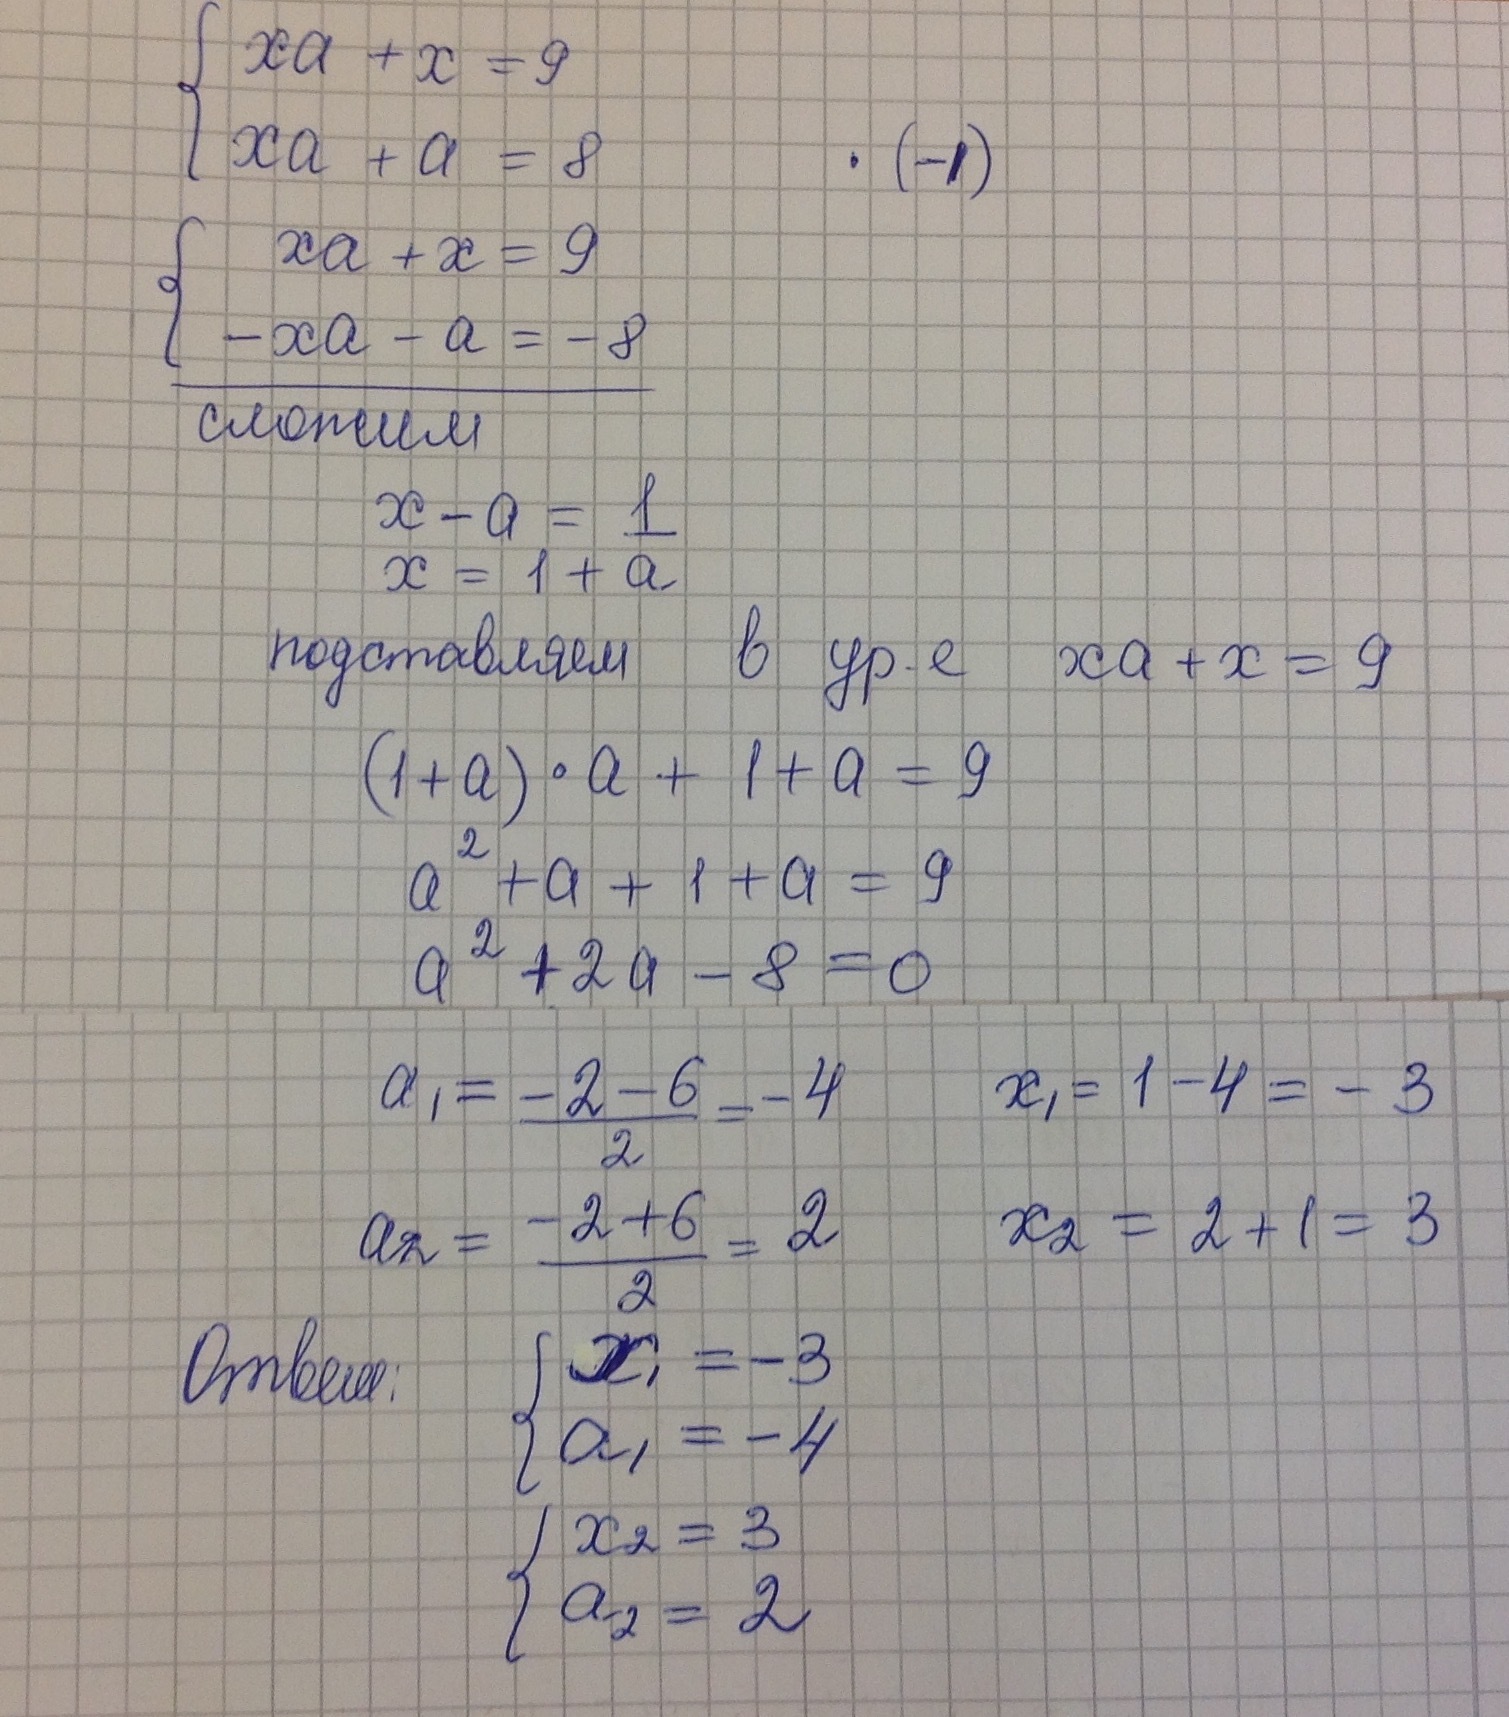 xa + x = 9
xa + a = 8 · (-1)
xa + x = 9
-xa - a = -8
сложим
x - a = 1
x = 1 + a
подставляем в ур-е xa + x = 9
(1+a)·a + 1 + a = 9
a² + a + 1 + a = 9
a² + 2a - 8 = 0
a₁ = (-2-6)/2 = -4 x₁ = 1 - 4 = -3
a₂ = (-2+6)/2 = 2 x₂ = 2 + 1 = 3
Ответ: x₁ = -3
a₁ = -4
x₂ = 3
a₂ = 2